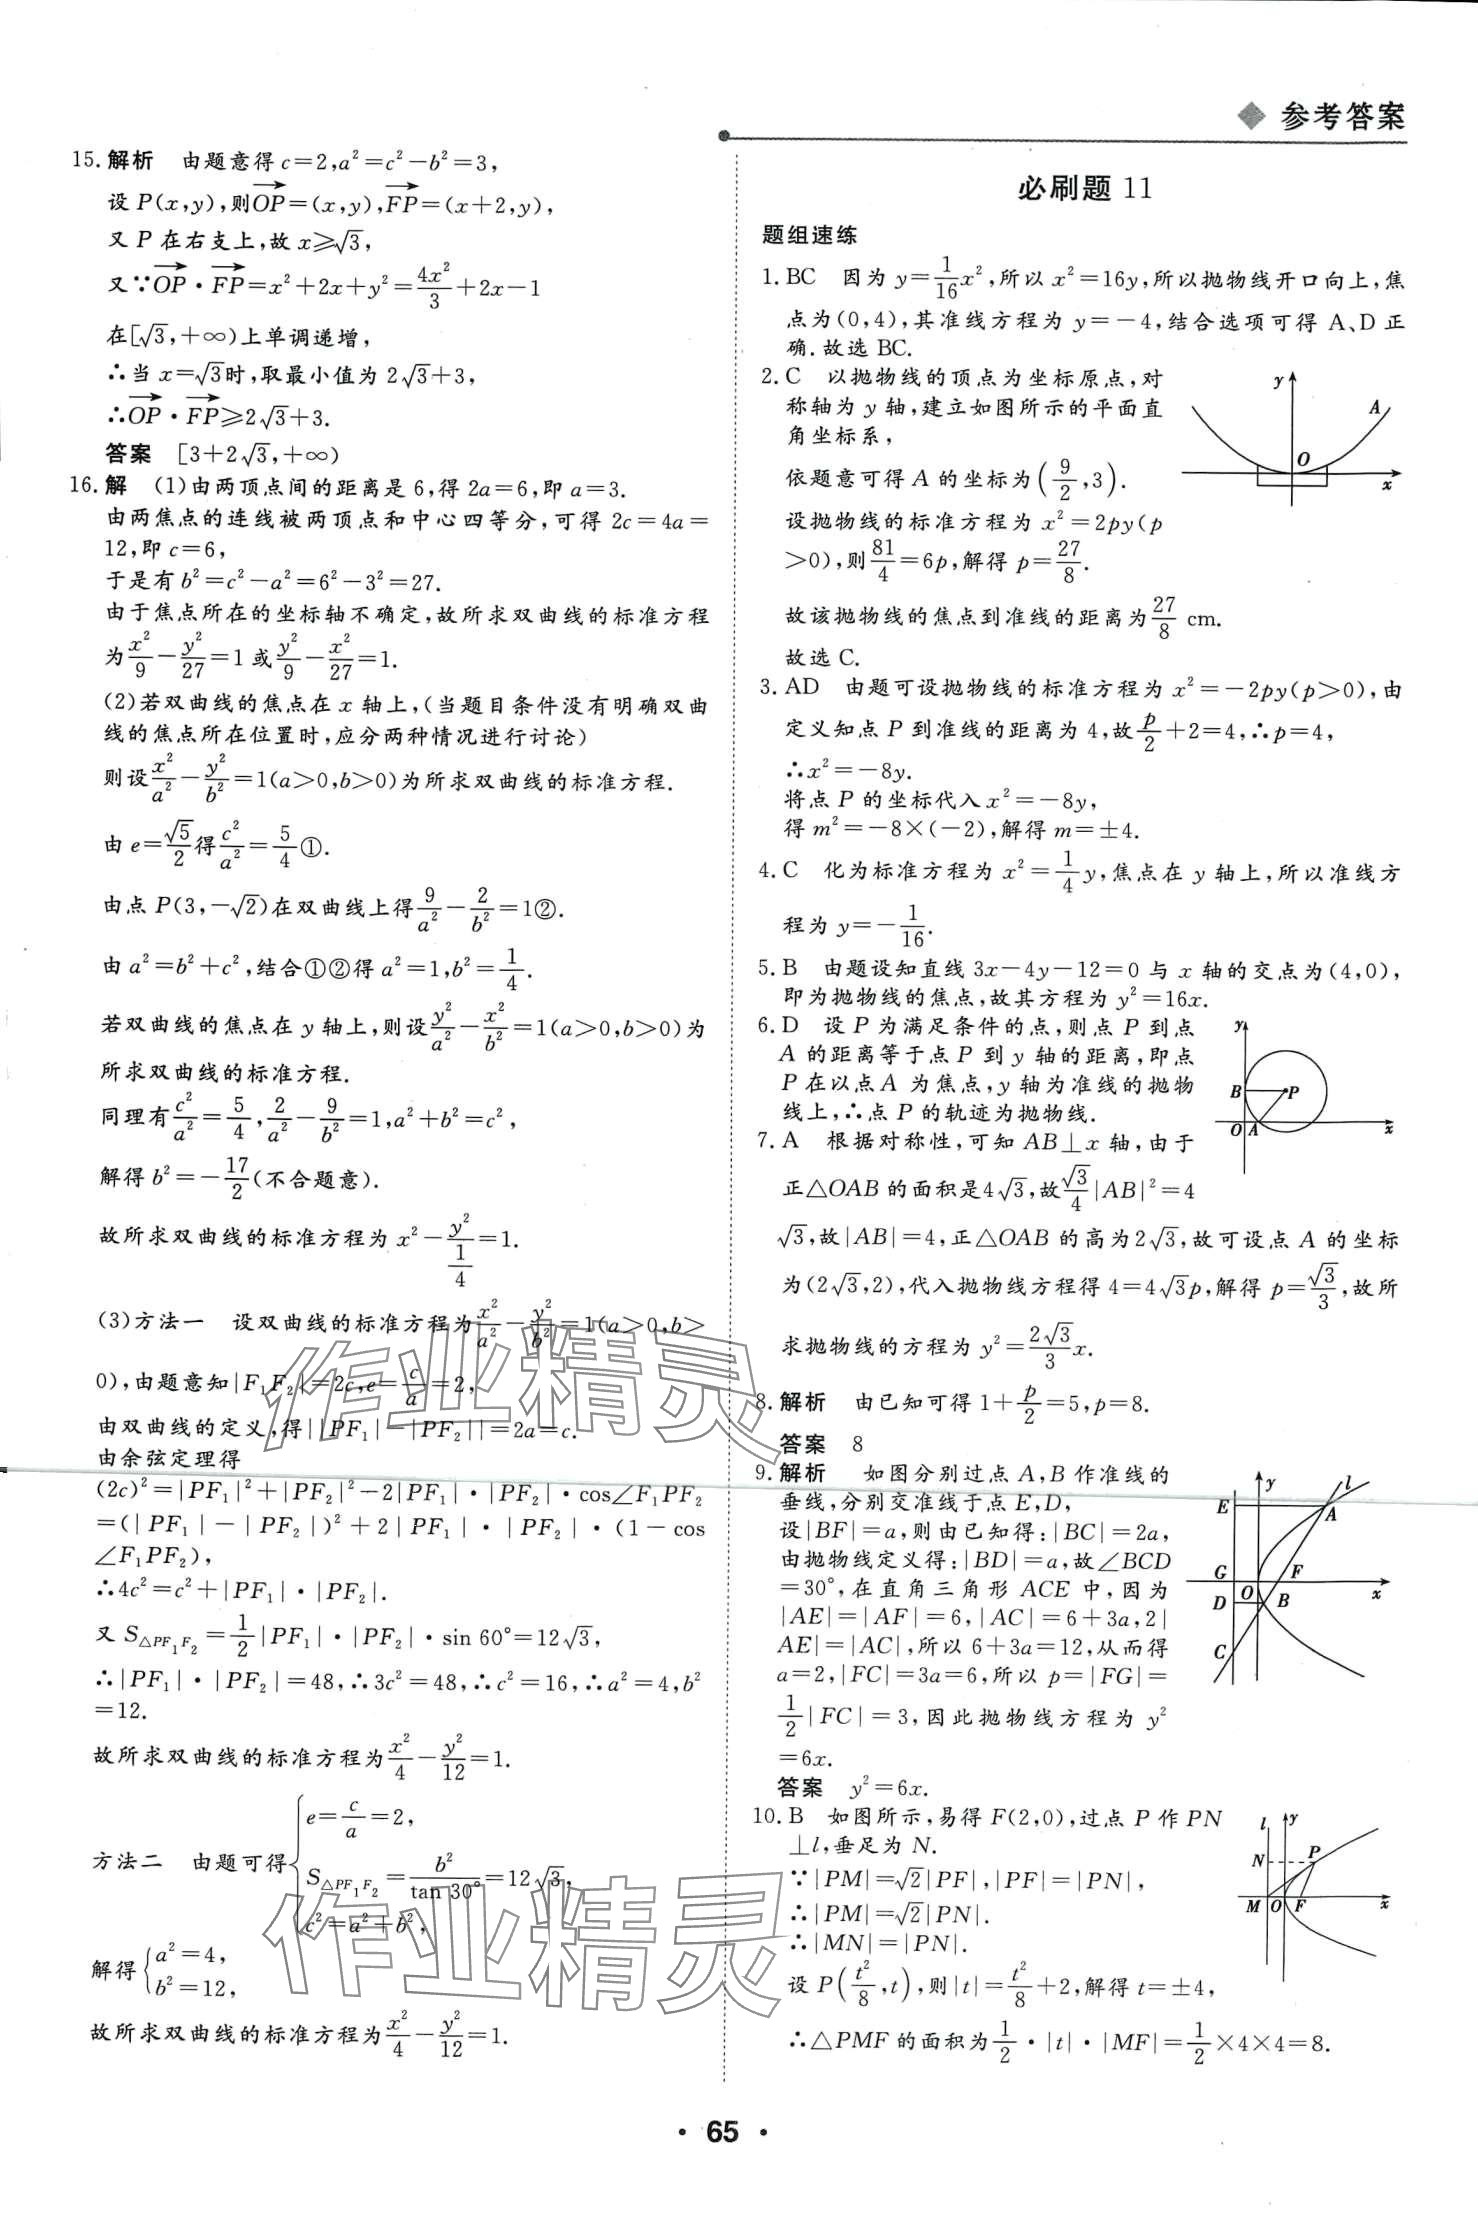 参考答案
15. 解析 由题意得 c=2,a²=c²-b²=3,
设 P(x,y),则OP=(x,y),FP=(x+2,y),
又 P 在右支上,故 x≥√3,
又∵OP·FP=x²+2x+y²=4x²/3+2x-1
在[√3,+∞)上单调递增,
∴当 x=√3时,取最小值为 2√3+3,
∴OP·FP≥2√3+3.
答案 [3+2√3,+∞)
16. 解 (1)由两顶点间的距离是 6,得 2a=6,即 a=3.
由两焦点的连线被两顶点和中心四等分,可得 2c=4a=
12,即 c=6,
于是有 b²=c²-a²=6²-3²=27.
由于焦点所在的坐标轴不确定,故所求双曲线的标准方程
为x²/9-y²/27=1 或y²/9-x²/27=1.
(2)若双曲线的焦点在 x 轴上,(当题目条件没有明确双曲
线的焦点所在位置时,应分两种情况进行讨论)
则设x²/a²-y²/b²=1(a>0,b>0)为所求双曲线的标准方程.
由 e=√5/2得c²/a²=5/4①.
由点 P(3,-√2)在双曲线上得9/a²-2/b²=1②.
由 a²=b²+c²,结合①②得 a²=1,b²=1/4.
若双曲线的焦点在 y 轴上,则设y²/a²-x²/b²=1(a>0,b>0)为
所求双曲线的标准方程.
同理有c²/a²=5/4,2/a²-9/b²=1,a²+b²=c²,
解得 b²=-17/2(不合题意).
故所求双曲线的标准方程为 x²-y²/(1/4)=1.
(3)方法一 设双曲线的标准方程为x²/a²-y²/b²=1(a>0,b>
0),由题意知|F₁F₂|=2c,e=c/a=2,
由双曲线的定义,得||PF₁|-|PF₂||=2a=c.
由余弦定理得
(2c)²=|PF₁|²+|PF₂|²-2|PF₁|·|PF₂|·cos∠F₁PF₂
=(|PF₁|-|PF₂|)²+2|PF₁|·|PF₂|·(1-cos
∠F₁PF₂),
∴4c²=c²+|PF₁|·|PF₂|.
又 S△PF₁F₂=1/2|PF₁|·|PF₂|·sin 60°=12√3,
∴|PF₁|·|PF₂|=48,∴3c²=48,∴c²=16,∴a²=4,b²
=12.
故所求双曲线的标准方程为x²/4-y²/12=1.
方法二 由题可得{e=c/a=2,
S△PF₁F₂=b²/tan 30°=12√3,
c²=a²+b²,
解得{a²=4,
b²=12,
故所求双曲线的标准方程为x²/4-y²/12=1.
必刷题 11
题组速练
1. BC 因为 y=1/16x²,所以 x²=16y,所以抛物线开口向上,焦
点为(0,4),其准线方程为 y=-4,结合选项可得 A、D 正
确.故选 BC.
2. C 以抛物线的顶点为坐标原点,对
称轴为 y 轴,建立如图所示的平面直
角坐标系,
依题意可得 A 的坐标为(9/2,3).
设抛物线的标准方程为 x²=2py(p
>0),则81/4=6p,解得 p=27/8.
故该抛物线的焦点到准线的距离为27/8 cm.
故选 C.
y
A
O
x
3. AD 由题可设抛物线的标准方程为 x²=-2py(p>0),由
定义知点 P 到准线的距离为 4,故p/2+2=4,∴p=4,
∴x²=-8y.
将点 P 的坐标代入 x²=-8y,
得 m²=-8×(-2),解得 m=±4.
4. C 化为标准方程为 x²=1/4y,焦点在 y 轴上,所以准线方
程为 y=-1/16.
5. B 由题设知直线 3x-4y-12=0 与 x 轴的交点为(4,0),
即为抛物线的焦点,故其方程为 y²=16x.
6. D 设 P 为满足条件的点,则点 P 到点
A 的距离等于点 P 到 y 轴的距离,即点
P 在以点 A 为焦点,y 轴为准线的抛物
线上,∴点 P 的轨迹为抛物线.
y
B
P
O
A
x
7. A 根据对称性,可知 AB⊥x 轴,由于
正△OAB 的面积是 4√3,故√3/4|AB|²=4
√3,故|AB|=4,正△OAB 的高为 2√3,故可设点 A 的坐标
为(2√3,2),代入抛物线方程得 4=4√3p,解得 p=√3/3,故所
求抛物线的方程为 y²=2√3/3x.
8. 解析 由已知可得 1+p/2=5,p=8.
答案 8
9. 解析 如图分别过点 A,B 作准线的
垂线,分别交准线于点 E,D,
设|BF|=a,则由已知得:|BC|=2a,
由抛物线定义得:|BD|=a,故∠BCD
=30°,在直角三角形 ACE 中,因为
|AE|=|AF|=6,|AC|=6+3a,2|
AE|=|AC|,所以 6+3a=12,从而得
a=2,|FC|=3a=6,所以 p=|FG|=
1/2|FC|=3,因此抛物线方程为 y²
=6x.
答案 y²=6x.
y
l
E
A
G
F
O
x
D
B
C
10. B 如图所示,易得 F(2,0),过点 P 作 PN
⊥l,垂足为 N.
∵|PM|=√2|PF|,|PF|=|PN|,
∴|PM|=√2|PN|.
∴|MN|=|PN|.
设 P(t²/8,t),则|t|=t²/8+2,解得 t=±4,
∴△PMF 的面积为1/2·|t|·|MF|=1/2×4×4=8.
l
y
N
P
M
O
F
x
作业精灵
作业精灵
· 65 ·